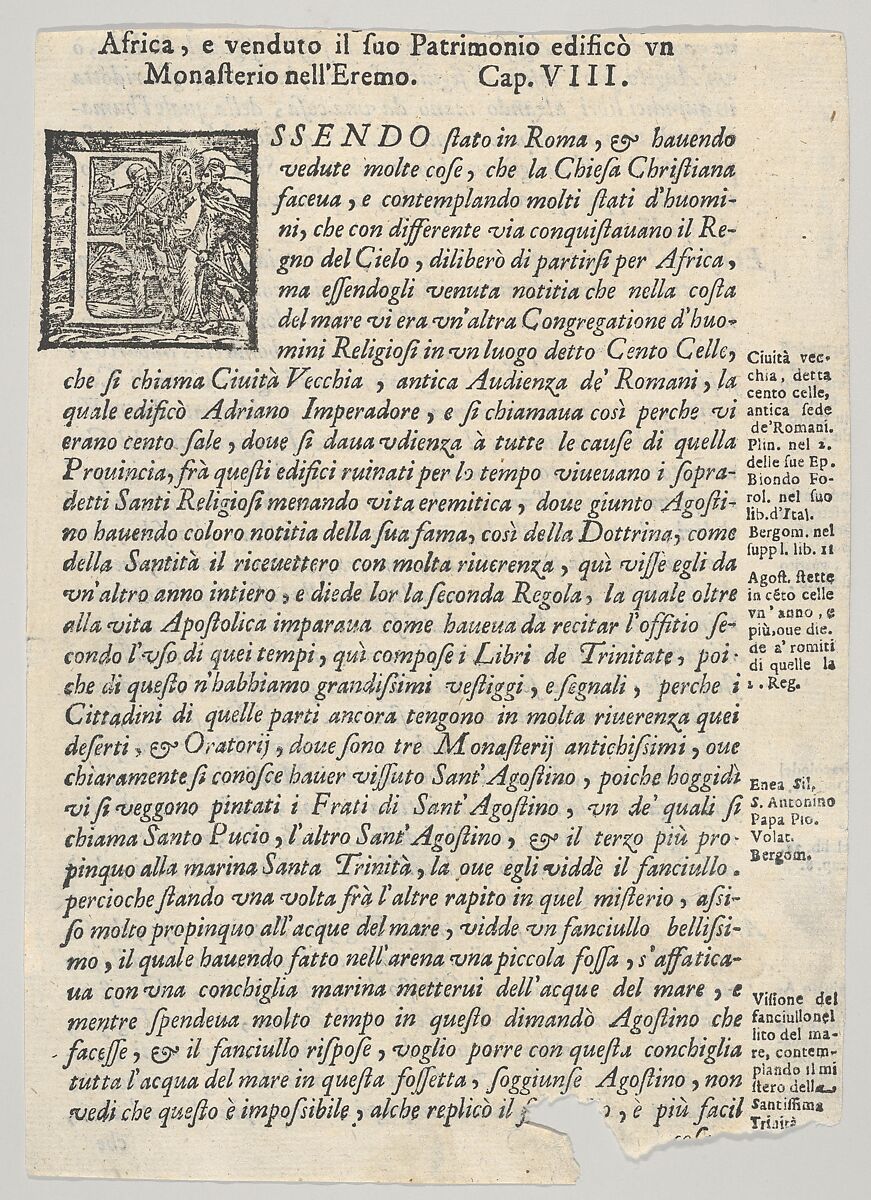 Africa, e venduto il ſuo Patrimonio edificò vn
Monaſterio nell'Eremo. Cap. VIII.
ESSENDO ſtato in Roma, & hauendo
vedute molte coſe, che la Chieſa Chriſtiana
faceua, e contemplando molti ſtati d'huomi-
ni, che con differente via conquiſtauano il Re-
gno del Cielo, diliberò di partirſi per Africa,
ma eſſendogli venuta notitia che nella coſta
del mare vi era vn'altra Congregatione d'huo-
mini Religioſi in vn luogo detto Cento Celle,
che ſi chiama Ciuità Vecchia, antica Audienza de' Romani, la
quale edificò Adriano Imperadore, e ſi chiamaua così perche vi
erano cento ſale, doue ſi daua vdienza à tutte le cauſe di quella
Prouincia, frà queſti edifici ruinati per lo tempo viueuano i ſopra-
detti Santi Religioſi menando vita eremitica, doue giunto Agoſti-
no hauendo coloro notitia della ſua fama, così della Dottrina, come
della Santità il riceuettero con molta riuerenza, quì viſſe egli da
vn'altro anno intiero, e diede lor la ſeconda Regola, la quale oltre
alla vita Apoſtolica imparaua come haueua da recitar l'offitio ſe-
condo l'vſo di quei tempi, quì compoſe i Libri de Trinitate, poi-
che di queſto n'habbiamo grandiſſimi veſtiggi, e ſegnali, perche i
Cittadini di quelle parti ancora tengono in molta riuerenza quei
deſerti, & Oratorij, doue ſono tre Monaſterij antichiſſimi, oue
chiaramente ſi conoſce hauer viſſuto Sant'Agoſtino, poiche hoggidì
vi ſi veggono pintati i Frati di Sant'Agoſtino, vn de' quali ſi
chiama Santo Pucio, l'altro Sant'Agoſtino, & il terzo più pro-
pinquo alla marina Santa Trinità, la oue egli viddè il fanciullo.
percioche ſtando vna volta frà l'altre rapito in quel miſterio, aſſi-
ſo molto propinquo all'acque del mare, vidde vn fanciullo belliſſi-
mo, il quale hauendo fatto nell'arena vna piccola foſſa, s'affatica-
ua con vna conchiglia marina metterui dell'acque del mare, e
mentre ſpendeua molto tempo in queſto dimandò Agoſtino che
faceſſe, & il fanciullo riſpoſe, voglio porre con queſta conchiglia
tutta l'acqua del mare in queſta foſſetta, ſoggiunſe Agoſtino, non
vedi che queſto è impoſſibile, alche replicò il , è più facil
Ciuità vec-
chia, detta
cento celle,
antica ſede
de'Romani.
Plin. nel 2.
delle ſue Ep.
Biondo Fo-
rol. nel ſuo
lib.d'Ital.
Bergom. nel
ſuppl. lib. 11
Agoſt. ſtette
in cẽto celle
vn'anno, e
più,oue die.
de a' romiti
di quelle la
2. Reg.
Enea Sil.
S. Antonino
Papa Pio.
Volat.
Bergom.
Viſione del
fanciullo nel
lito del ma-
re, contem-
plando il mi
ſtero della
Santiſſima
Trinità